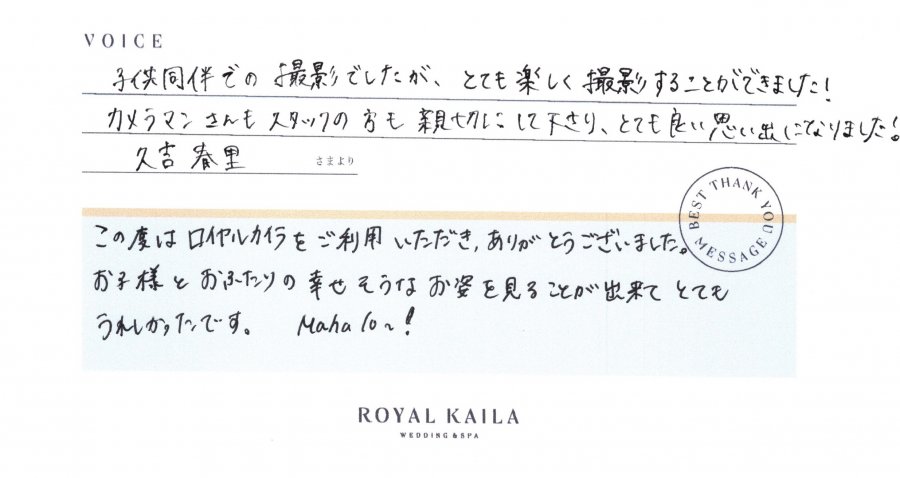 VOICE
子供同伴での撮影でしたが、とても楽しく撮影することができました!
カメラマンさんもスタッフの方も親切にして下さり、とても良い思い出になりました!
久吉春里 さまより
BEST THANK YOU MESSAGE
この度はロイヤルカイラをご利用いただき、ありがとうございました。
お子様とおふたりの幸せそうなお姿を見ることが出来てとても
うれしかったです。 Mahalo~!
ROYAL KAILA
WEDDING & SPA